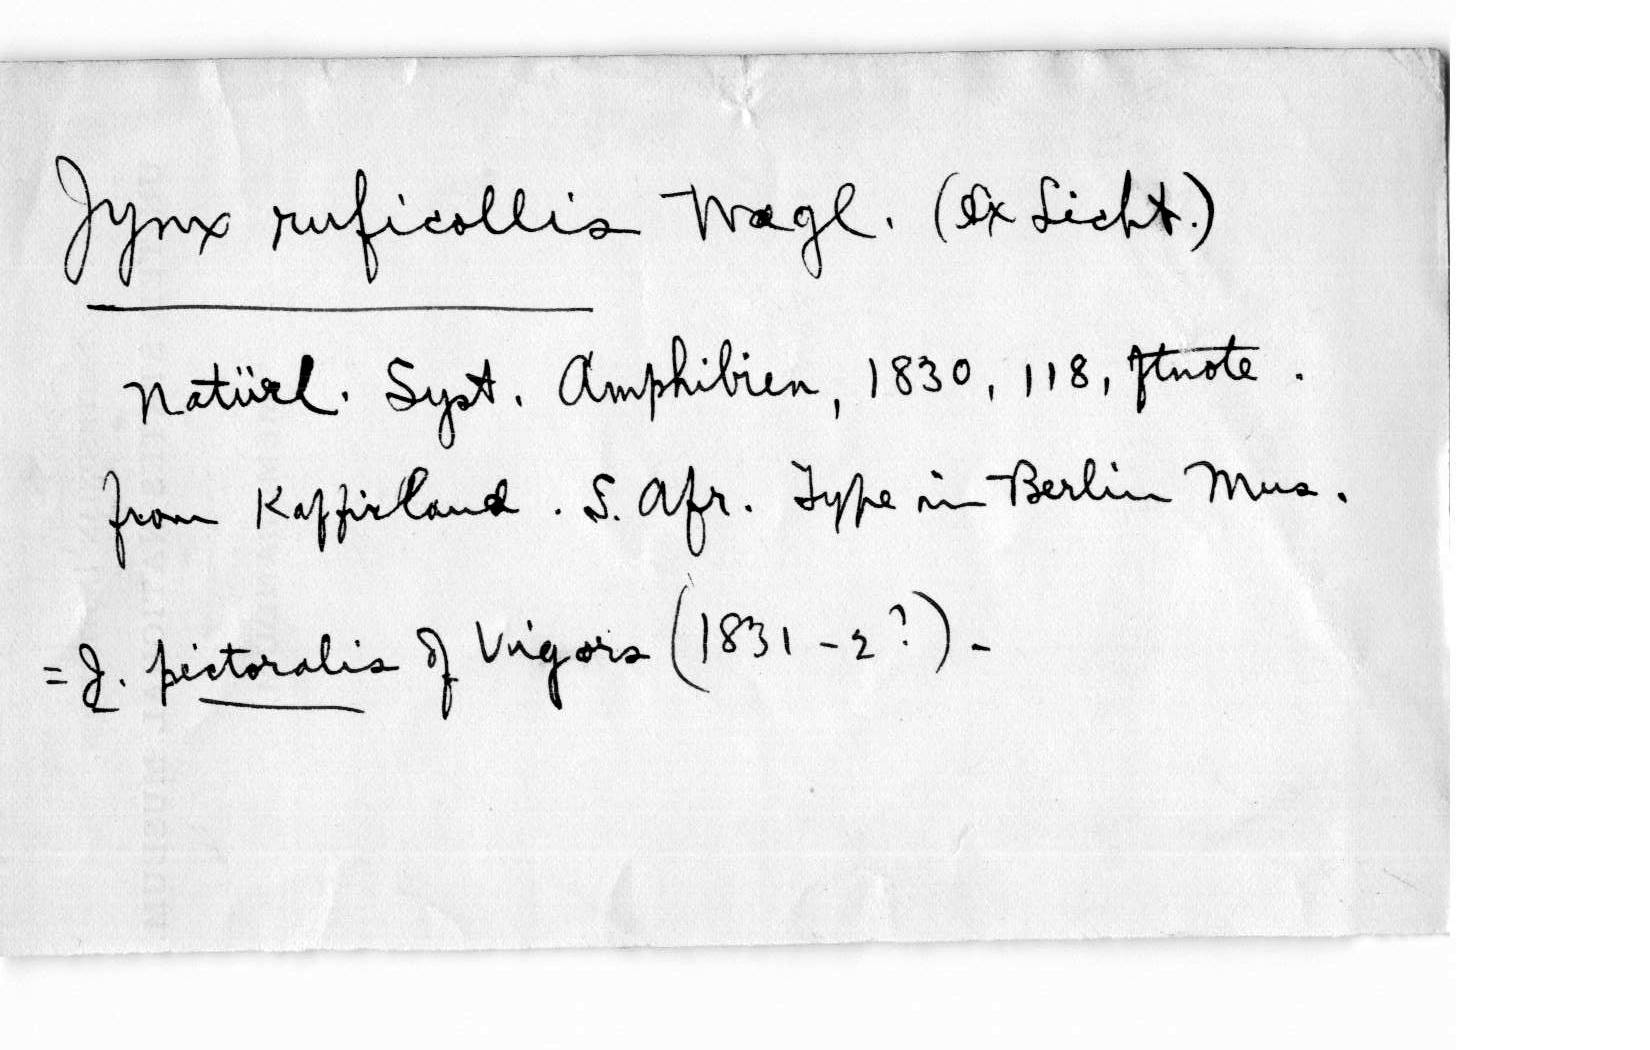 Jynx ruficollis Wagl. (Ex Licht.)
Natürl. Syst. Amphibien, 1830, 118, ftnote.
from Kaffirland. S. Afr. Type in Berlin Mus.
= J. pectoralis of Vigors (1831-2?)-